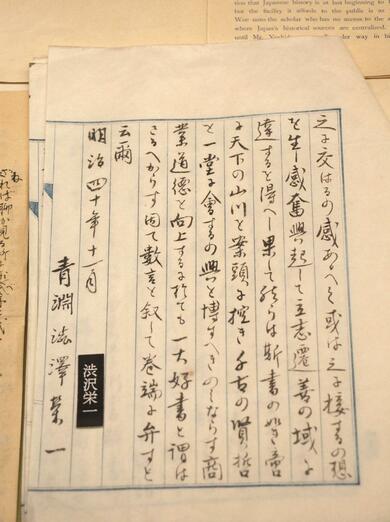 tion that Japanese history is at last beginning to
but the facility it affords to the public is so
unto the scholar who has no access to the
where Japan's historical sources are centralized.
until Mr. way in
之と交はるの感あるへく或は之に接するの想
を生し感奮興起して立志遷善の域に
達するを得へし果して然らは斯書の如き啻
に天下の山川を案頭に挫き千古の賢哲
を一堂に會するの興を博すへきのみならす商
業道徳を向上するに於ても一大好書と謂は
さるへからす因て數言を叙して巻端に弁すと
云爾
明治四十年十一月
青淵澁澤榮一
渋沢栄一